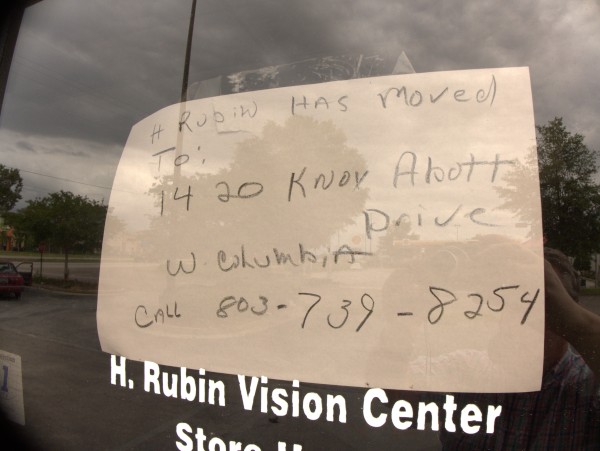 H RUBIN HAS moved
To:
1420 KNOX Abott
Drive
W Columbia
CALL 803-739-8254
H. Rubin Vision Center
Store